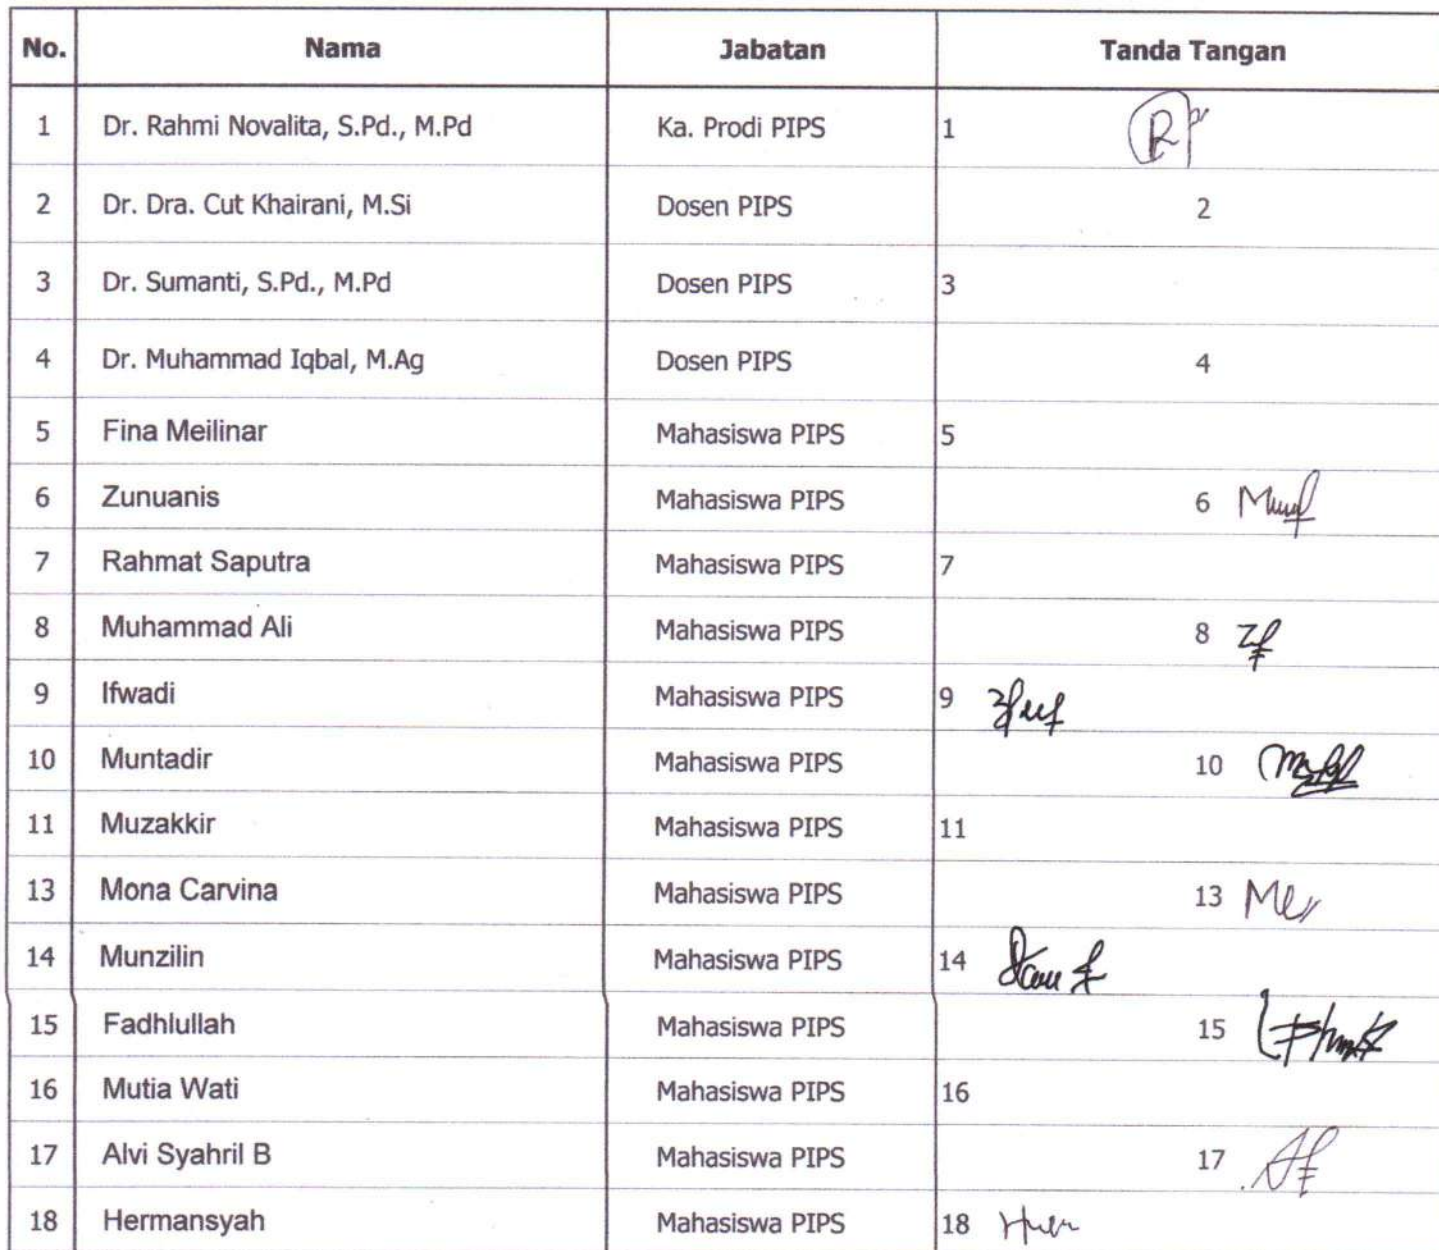 No. Nama Jabatan Tanda Tangan
1 Dr. Rahmi Novalita, S.Pd., M.Pd Ka. Prodi PIPS 1
2 Dr. Dra. Cut Khairani, M.Si Dosen PIPS 2
3 Dr. Sumanti, S.Pd., M.Pd Dosen PIPS 3
4 Dr. Muhammad Iqbal, M.Ag Dosen PIPS 4
5 Fina Meilinar Mahasiswa PIPS 5
6 Zunuanis Mahasiswa PIPS 6
7 Rahmat Saputra Mahasiswa PIPS 7
8 Muhammad Ali Mahasiswa PIPS 8
9 Ifwadi Mahasiswa PIPS 9
10 Muntadir Mahasiswa PIPS 10
11 Muzakkir Mahasiswa PIPS 11
13 Mona Carvina Mahasiswa PIPS 13
14 Munzilin Mahasiswa PIPS 14
15 Fadhlullah Mahasiswa PIPS 15
16 Mutia Wati Mahasiswa PIPS 16
17 Alvi Syahril B Mahasiswa PIPS 17
18 Hermansyah Mahasiswa PIPS 18